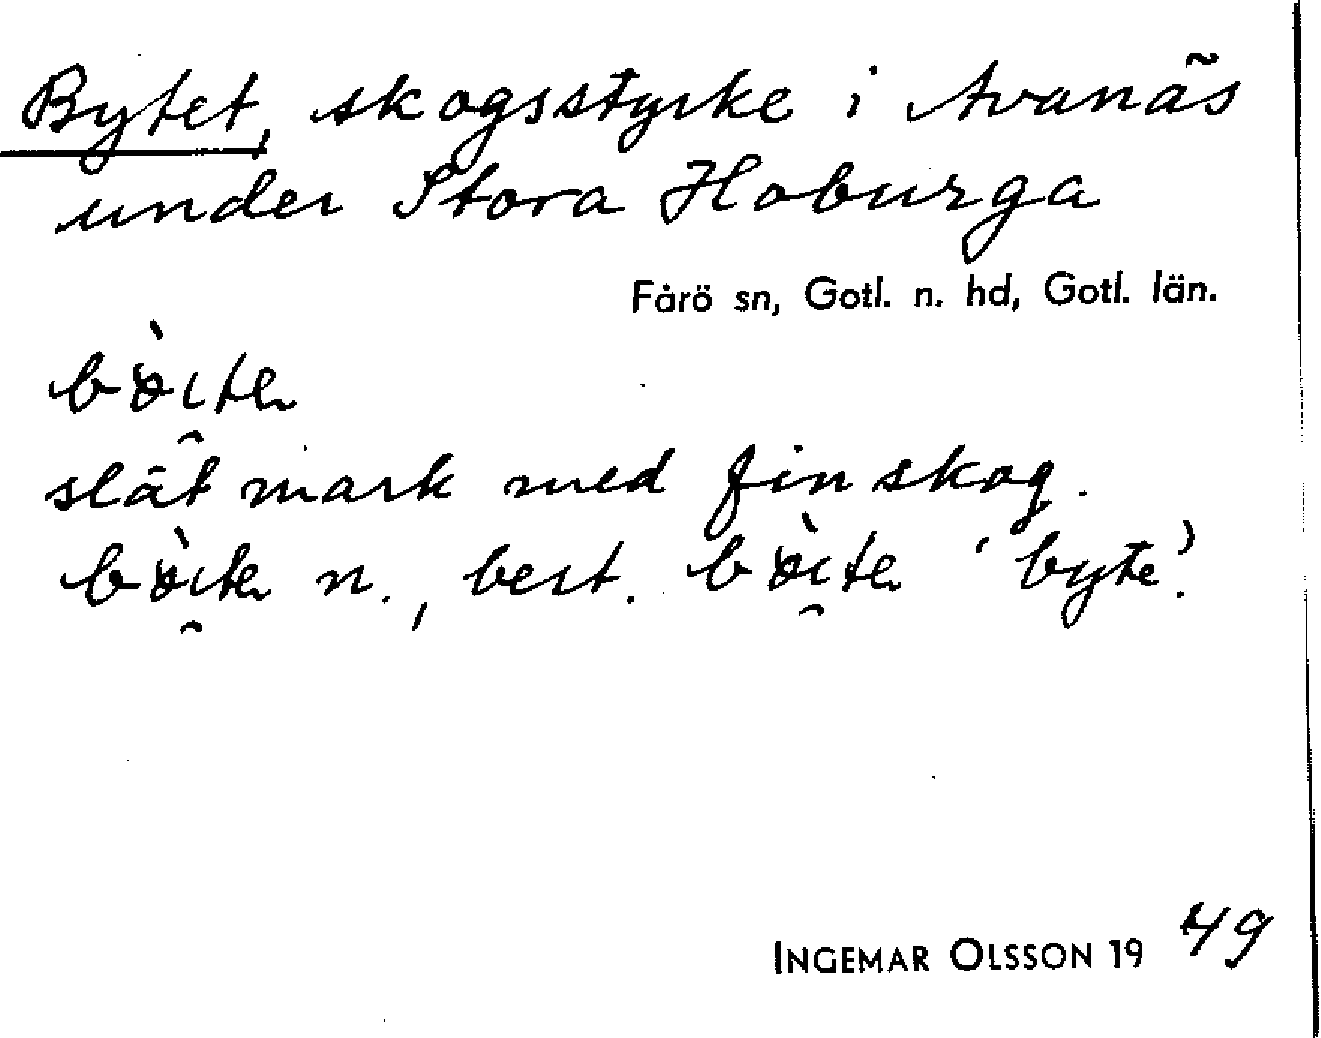 Bytet, skogsstycke i Avanäs
under Stora Hoburga
Fårö sn, Gotl. n. hd, Gotl. län.
slät mark med fin skog.
n., best. 'byte'.
INGEMAR OLSSON 19 49